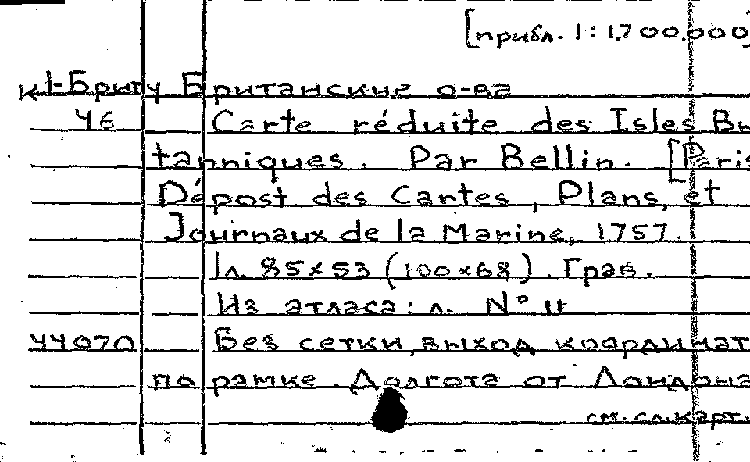 [прибл. 1:1.700.000]
к1-Брит/ Британские о-ва
46 Carte réduite des Isles Br
tanniques. Par Bellin. [Paris
Dépost des Cartes, Plans, et
Journaux de la Marine, 1757.
1л. 85×53 (100×68). Грав.
Из атласа: л. N°
44070 Без сетки, выход координат
по рамке. Долгота от Лондона
см. сл. карт.